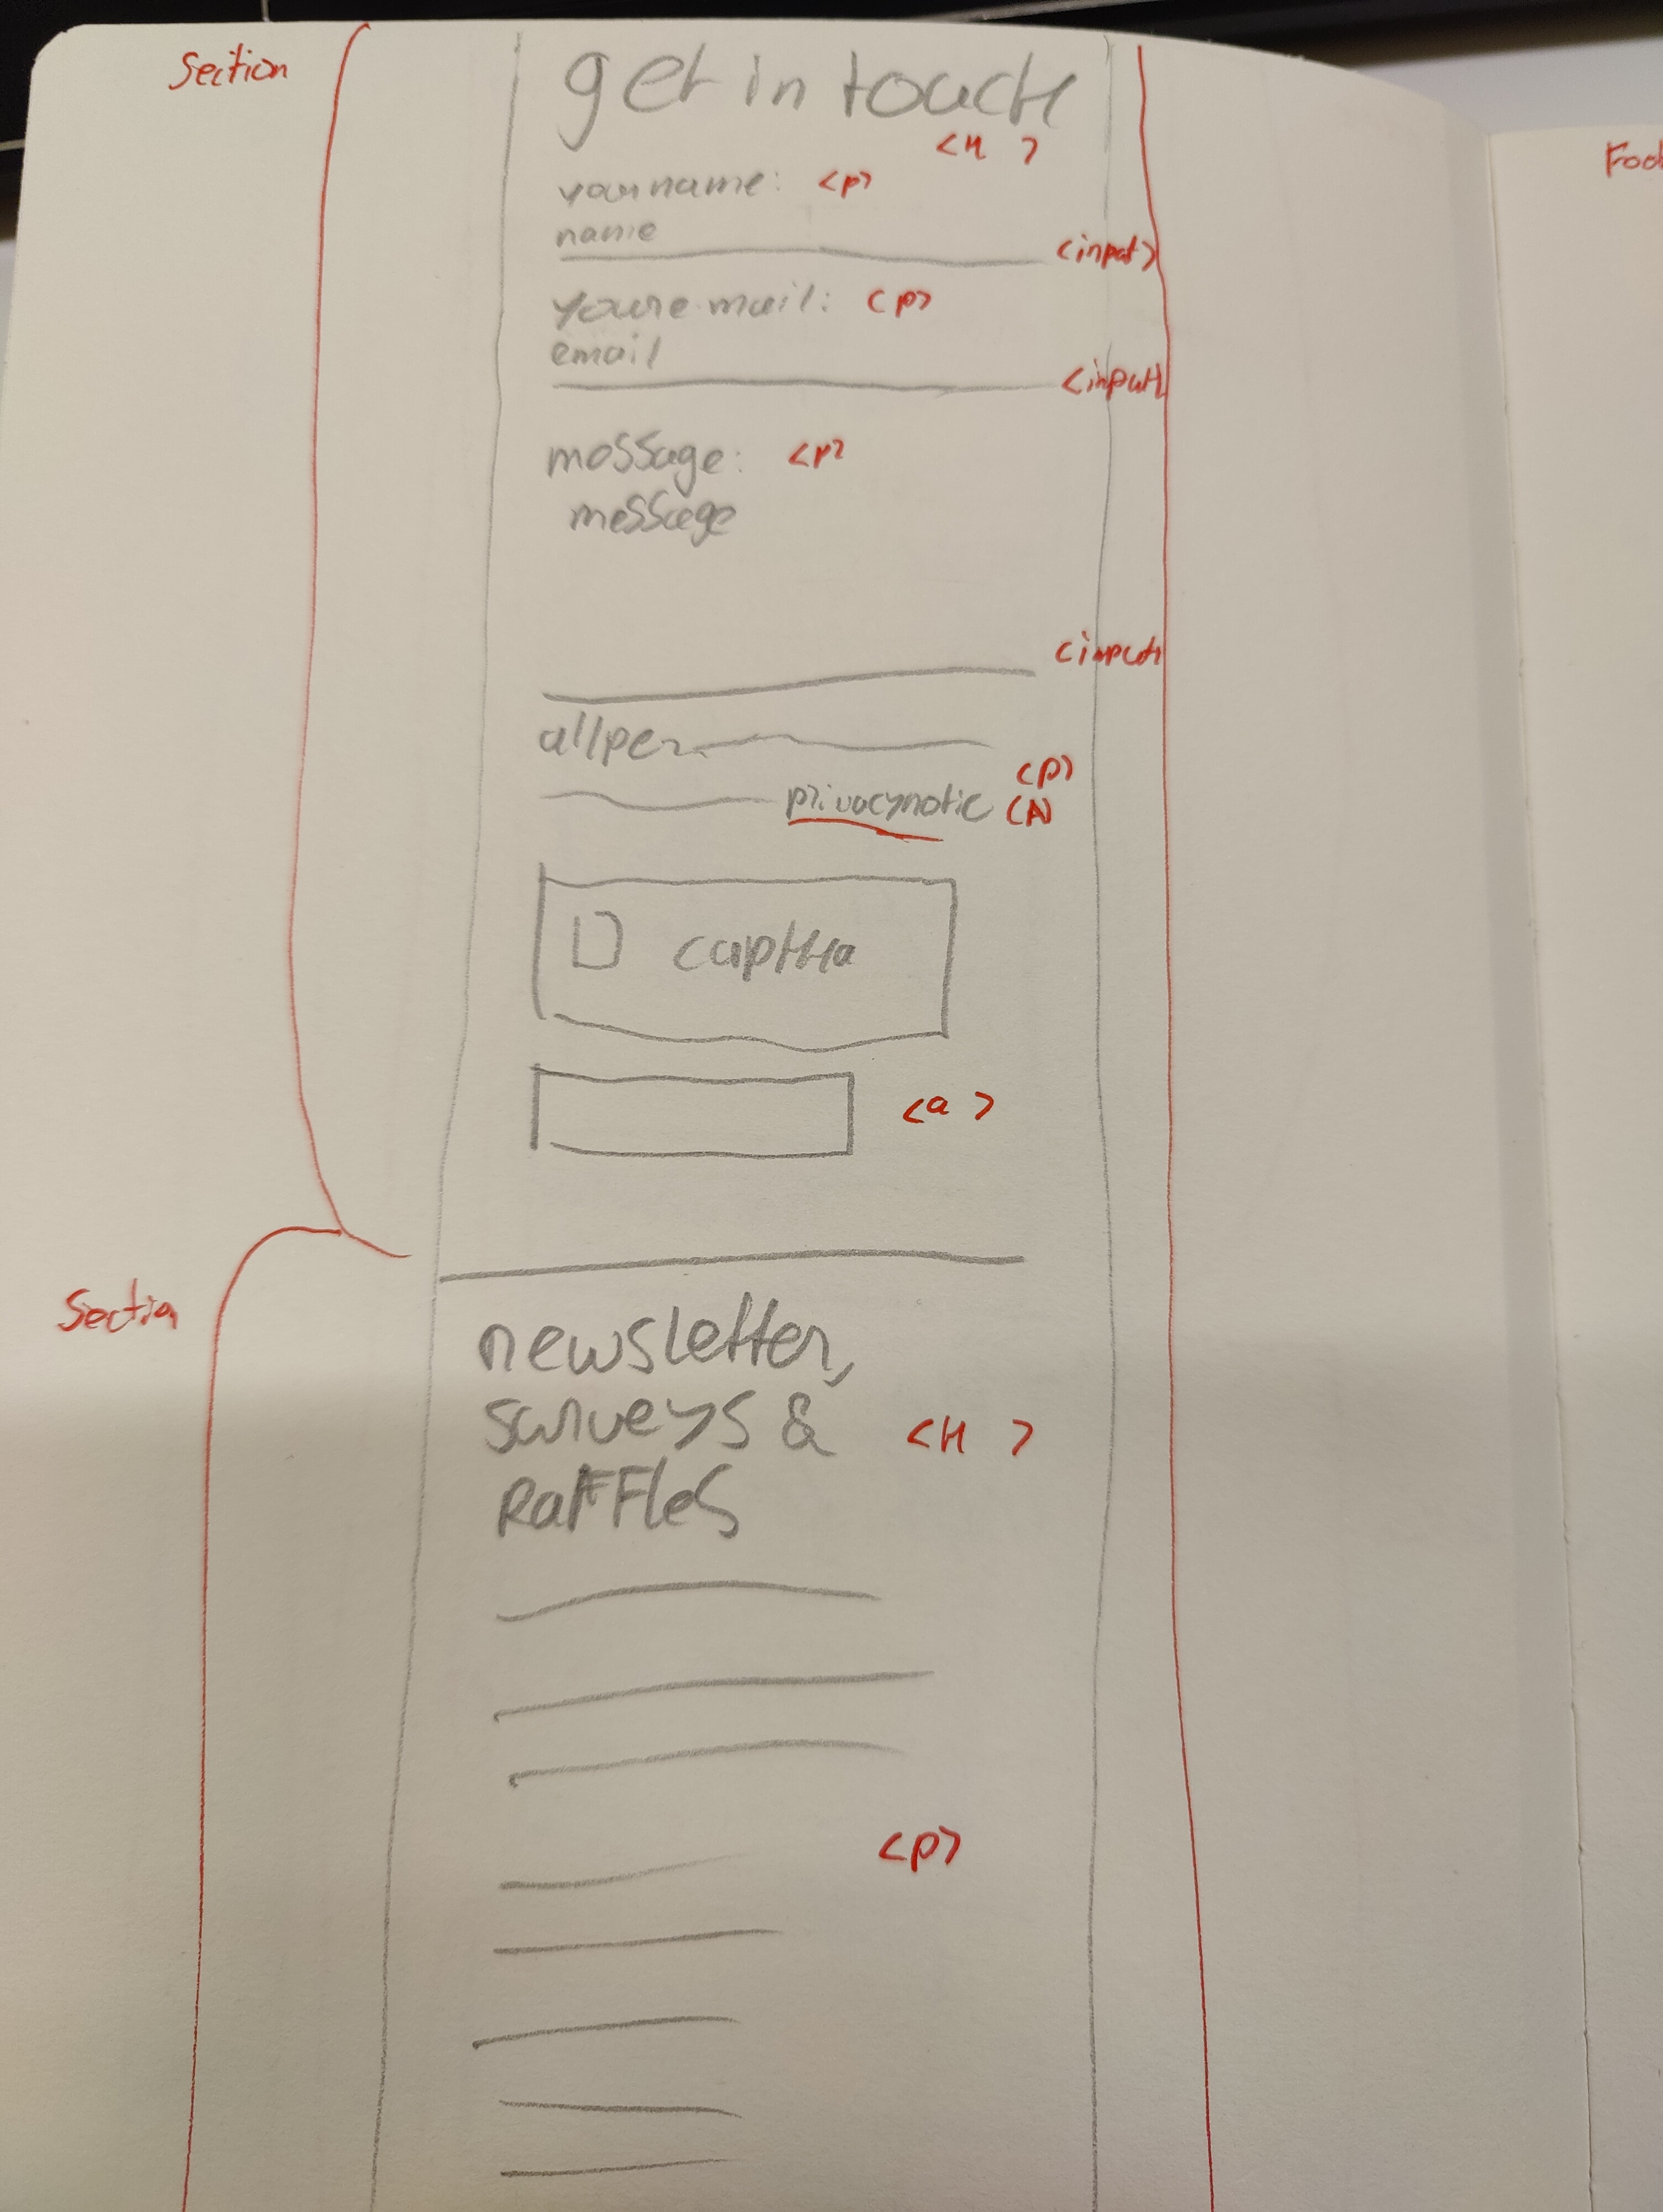 Section
get in touch
<H >
your name: <p>
name
<input>
your e-mail: <p>
email
<input>
message: <p>
message
<input>
all per
<p>
privacynotic <A
captha
<a >
Section
newsletter,
surveys & <H >
RaFFles
<p>
Foo